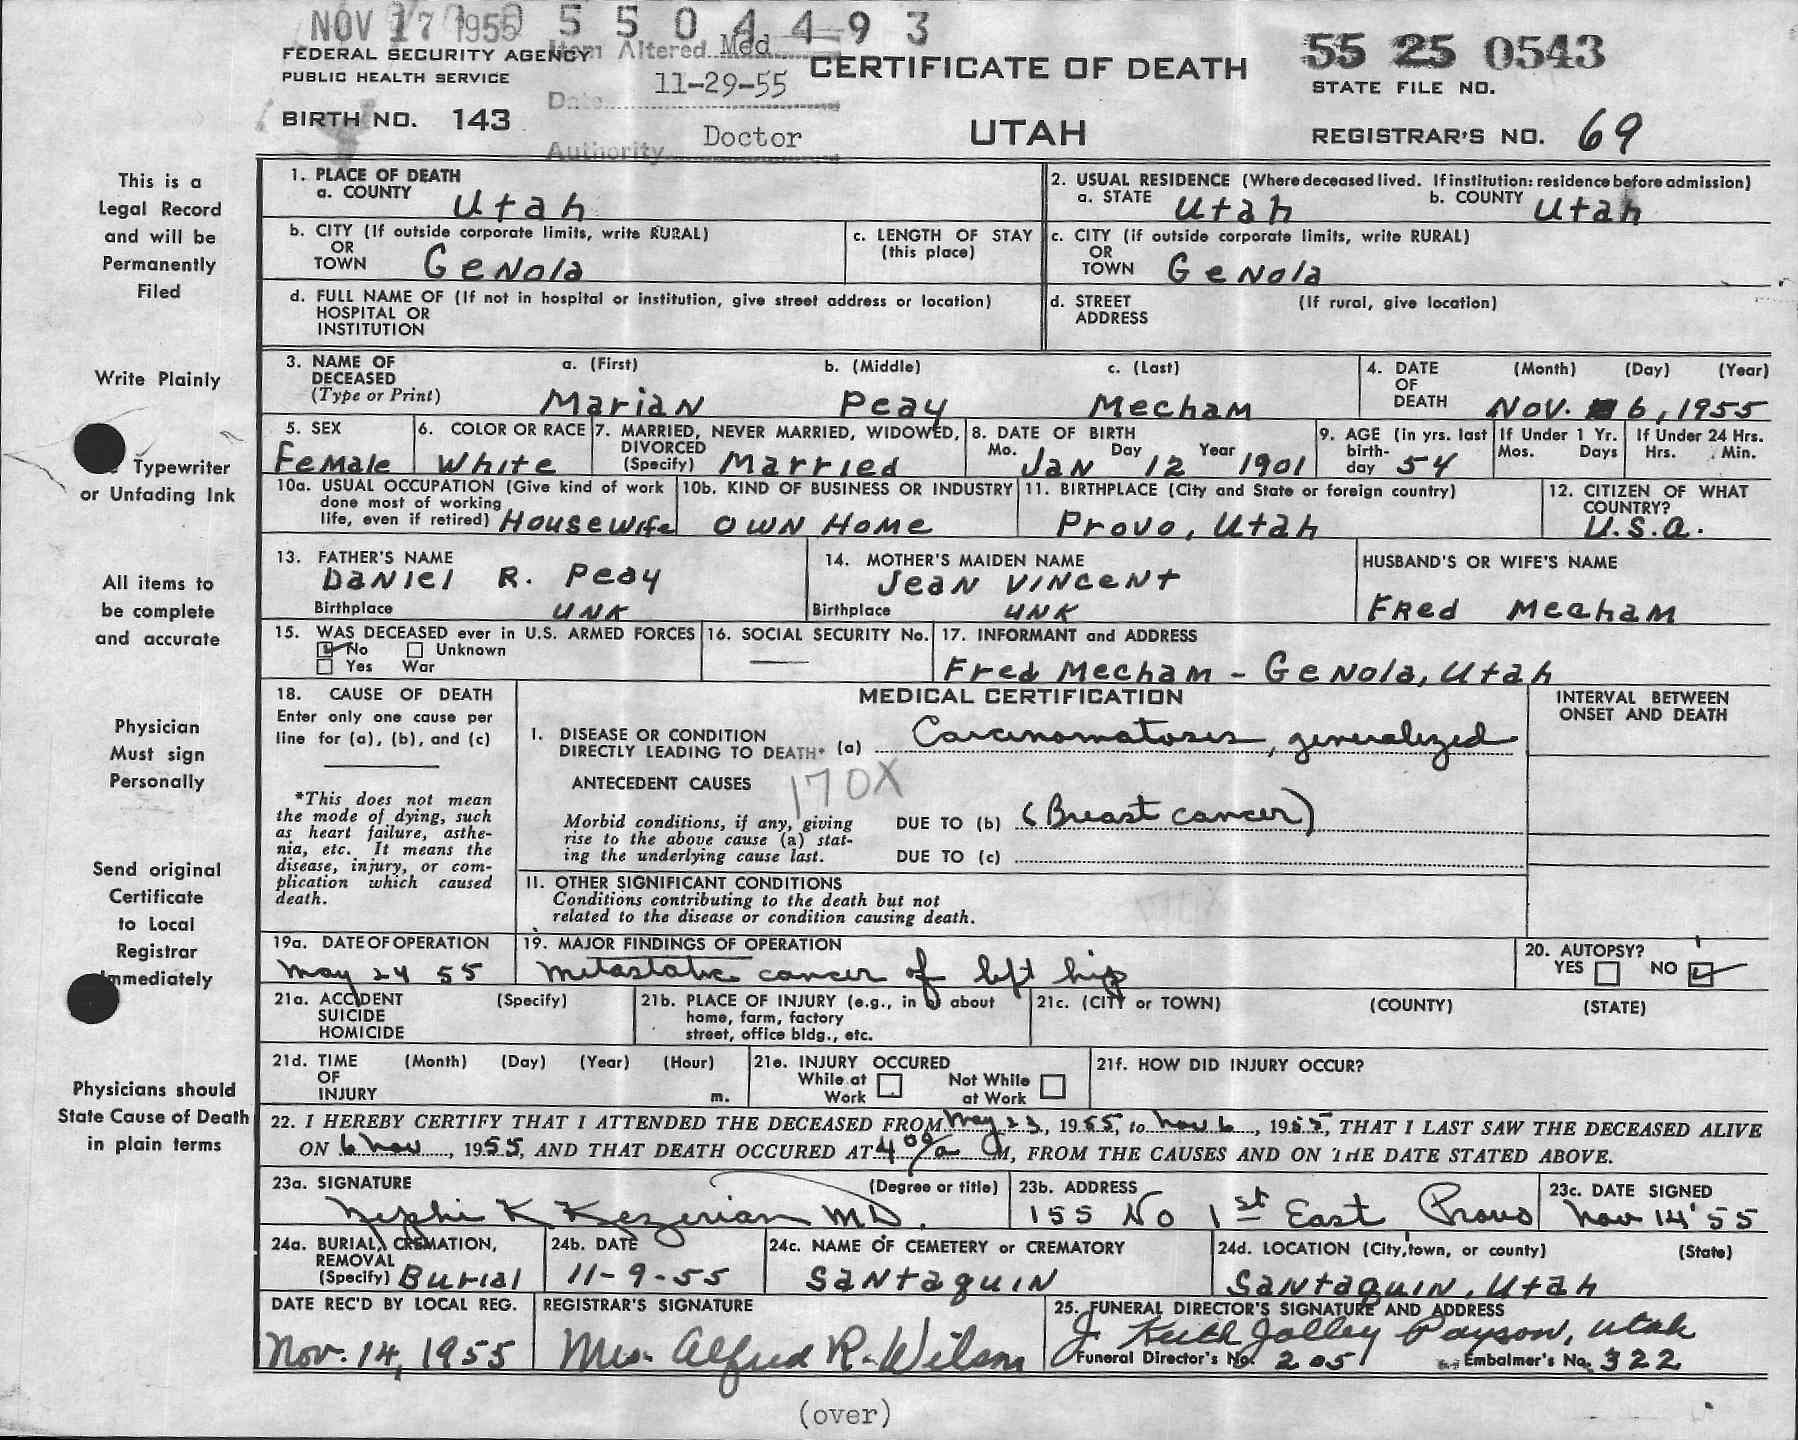 NOV 17 1955 5 5 0 4 4 9 3
FEDERAL SECURITY AGENCY Item Altered Med
PUBLIC HEALTH SERVICE
Date 11-29-55
CERTIFICATE OF DEATH
55 25 0543
STATE FILE NO.
BIRTH NO. 143
Authority Doctor
UTAH
REGISTRAR'S NO. 69
This is a
Legal Record
and will be
Permanently
Filed
Write Plainly
Typewriter
or Unfading Ink
All items to
be complete
and accurate
Physician
Must sign
Personally
Send original
Certificate
to Local
Registrar
Immediately
Physicians should
State Cause of Death
in plain terms
1. PLACE OF DEATH
a. COUNTY Utah
2. USUAL RESIDENCE (Where deceased lived. If institution: residence before admission)
a. STATE Utah b. COUNTY Utah
b. CITY (If outside corporate limits, write RURAL)
OR
TOWN Genola
c. LENGTH OF STAY
(this place)
c. CITY (if outside corporate limits, write RURAL)
OR
TOWN Genola
d. FULL NAME OF (If not in hospital or institution, give street address or location)
HOSPITAL OR
INSTITUTION
d. STREET (If rural, give location)
ADDRESS
3. NAME OF a. (First) b. (Middle) c. (Last)
DECEASED
(Type or Print) Marian Peay Mecham
4. DATE (Month) (Day) (Year)
OF
DEATH Nov. 6, 1955
5. SEX
Female
6. COLOR OR RACE
White
7. MARRIED, NEVER MARRIED, WIDOWED,
DIVORCED
(Specify) Married
8. DATE OF BIRTH
Mo. Jan Day 12 Year 1901
9. AGE (in yrs. last
birth-
day 54
If Under 1 Yr.
Mos. Days
If Under 24 Hrs.
Hrs. Min.
10a. USUAL OCCUPATION (Give kind of work
done most of working
life, even if retired) Housewife
10b. KIND OF BUSINESS OR INDUSTRY
Own Home
11. BIRTHPLACE (City and State or foreign country)
Provo, Utah
12. CITIZEN OF WHAT
COUNTRY?
U.S.A.
13. FATHER'S NAME
Daniel R. Peay
Birthplace UNK
14. MOTHER'S MAIDEN NAME
Jean Vincent
Birthplace UNK
HUSBAND'S OR WIFE'S NAME
Fred Mecham
15. WAS DECEASED ever in U.S. ARMED FORCES
No Unknown
Yes War
16. SOCIAL SECURITY No.
17. INFORMANT and ADDRESS
Fred Mecham - Genola, Utah
18. CAUSE OF DEATH
Enter only one cause per
line for (a), (b), and (c)
*This does not mean
the mode of dying, such
as heart failure, asthe-
nia, etc. It means the
disease, injury, or com-
plication which caused
death.
MEDICAL CERTIFICATION
INTERVAL BETWEEN
ONSET AND DEATH
I. DISEASE OR CONDITION
DIRECTLY LEADING TO DEATH* (a) Carcinomatosis, generalized
ANTECEDENT CAUSES 170X
Morbid conditions, if any, giving
rise to the above cause (a) stat-
ing the underlying cause last.
DUE TO (b) (Breast cancer)
DUE TO (c)
II. OTHER SIGNIFICANT CONDITIONS
Conditions contributing to the death but not
related to the disease or condition causing death.
19a. DATE OF OPERATION
May 24 55
19. MAJOR FINDINGS OF OPERATION
metastatic cancer of left hip
20. AUTOPSY?
YES NO
21a. ACCIDENT (Specify)
SUICIDE
HOMICIDE
21b. PLACE OF INJURY (e.g., in or about
home, farm, factory
street, office bldg., etc.
21c. (CITY or TOWN) (COUNTY) (STATE)
21d. TIME (Month) (Day) (Year) (Hour)
OF
INJURY m.
21e. INJURY OCCURED
While at Work Not While at Work
21f. HOW DID INJURY OCCUR?
22. I HEREBY CERTIFY THAT I ATTENDED THE DECEASED FROM May 23, 1955, to Nov 6, 1955, THAT I LAST SAW THE DECEASED ALIVE
ON 6 Nov, 1955, AND THAT DEATH OCCURED AT 4 00/a M, FROM THE CAUSES AND ON THE DATE STATED ABOVE.
23a. SIGNATURE (Degree or title)
Nephi K Kezerian MD.
23b. ADDRESS
155 No 1st East Provo
23c. DATE SIGNED
Nov 14 '55
24a. BURIAL, CREMATION,
REMOVAL
(Specify) Burial
24b. DATE
11-9-55
24c. NAME OF CEMETERY or CREMATORY
Santaquin
24d. LOCATION (City, town, or county) (State)
Santaquin, Utah
DATE REC'D BY LOCAL REG.
Nov. 14, 1955
REGISTRAR'S SIGNATURE
Mrs. Alfred R. Wilson
25. FUNERAL DIRECTOR'S SIGNATURE AND ADDRESS
J. Keith Jolley Payson, Utah
Funeral Director's No. 205 Embalmer's No. 322
(over)